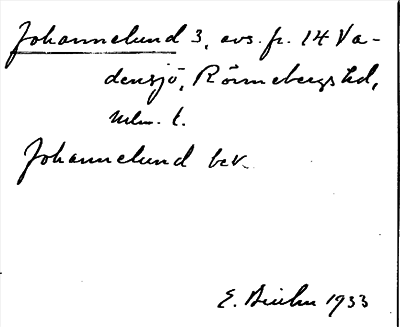 Johannelund 3, avs. fr. 14 Va-
densjö, Rönnebergs hd,
Mlm. l.
Johannelund bev.
E. Bruhn 1933